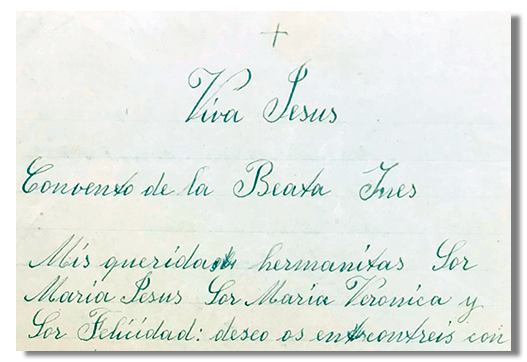 +
Viva Jesus
Convento de la Beata Ines
Mis queridas hermanitas Sor
Maria Jesus Sor Maria Veronica y
Sor Felicidad: deseo os encontreis con